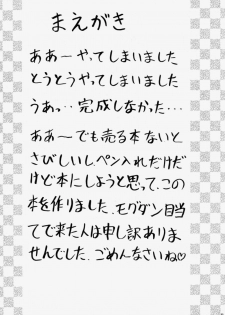 まえがき
ああーやってしまいました
とうとうやってしまいました
うあっ‥完成しなかった‥・
ああ～でも売る本ないと
さびしいしペン入れだけだ
けど本にしようと思って、この
本を作りました、モグダン目当
てで来た人は申し訳ありま
せんでした、ごめんなさいね♡